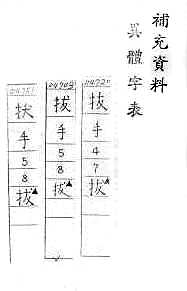 補充資料
異體字表
拔
手
4
7
拔
04708
拔
手
5
8
拔
手
5
8
拔